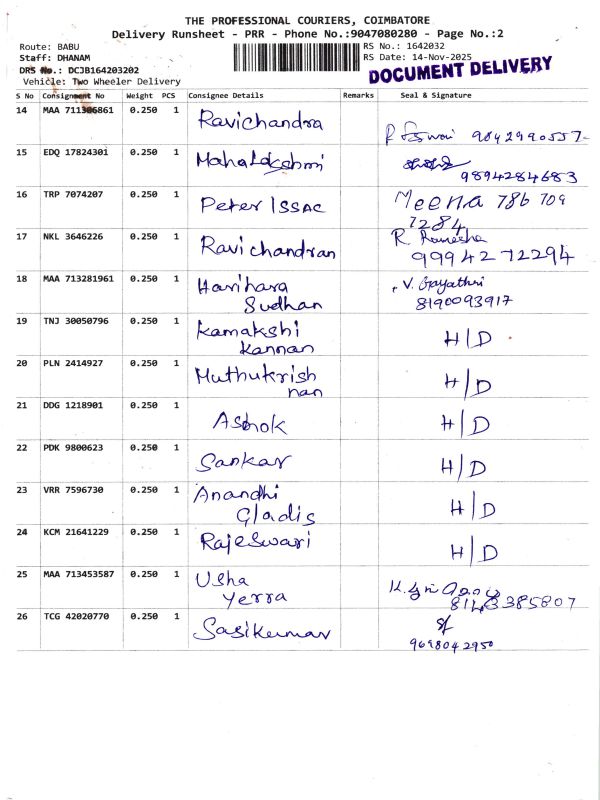 THE PROFESSIONAL COURIERS, COIMBATORE
Delivery Runsheet - PRR - Phone No.:9047080280 - Page No.:2
Route: BABU
Staff: DHANAM
DRS No.: DCJB164203202
Vehicle: Two Wheeler Delivery
RS No.: 1642032
RS Date: 14-Nov-2025
DOCUMENT DELIVERY
S No Consignment No Weight PCS Consignee Details Remarks Seal & Signature
14 MAA 711306861 0.250 1 Ravichandra 9842990557-
15 EDQ 17824301 0.250 1 Mahalakshmi 9894284683
16 TRP 7074207 0.250 1 Peter ISSAC Meena 786 709
7284
17 NKL 3646226 0.250 1 Ravichandran R Ramesha
99942 72294
18 MAA 713281961 0.250 1 Harihara V. Gayathri
Sudhan 8190093917
19 TNJ 30050796 0.250 1 Kamakshi
Kannan H/D
20 PLN 2414927 0.250 1 Muthukrish
nan H/D
21 DDG 1218901 0.250 1 Ashok H/D
22 PDK 9800623 0.250 1 Sankar H/D
23 VRR 7596730 0.250 1 Anandhi
Gladis H/D
24 KCM 21641229 0.250 1 Rajeswari H/D
25 MAA 713453587 0.250 1 Usha
Yerra 8143385807
26 TCG 42020770 0.250 1 Sasikumar
9698042950